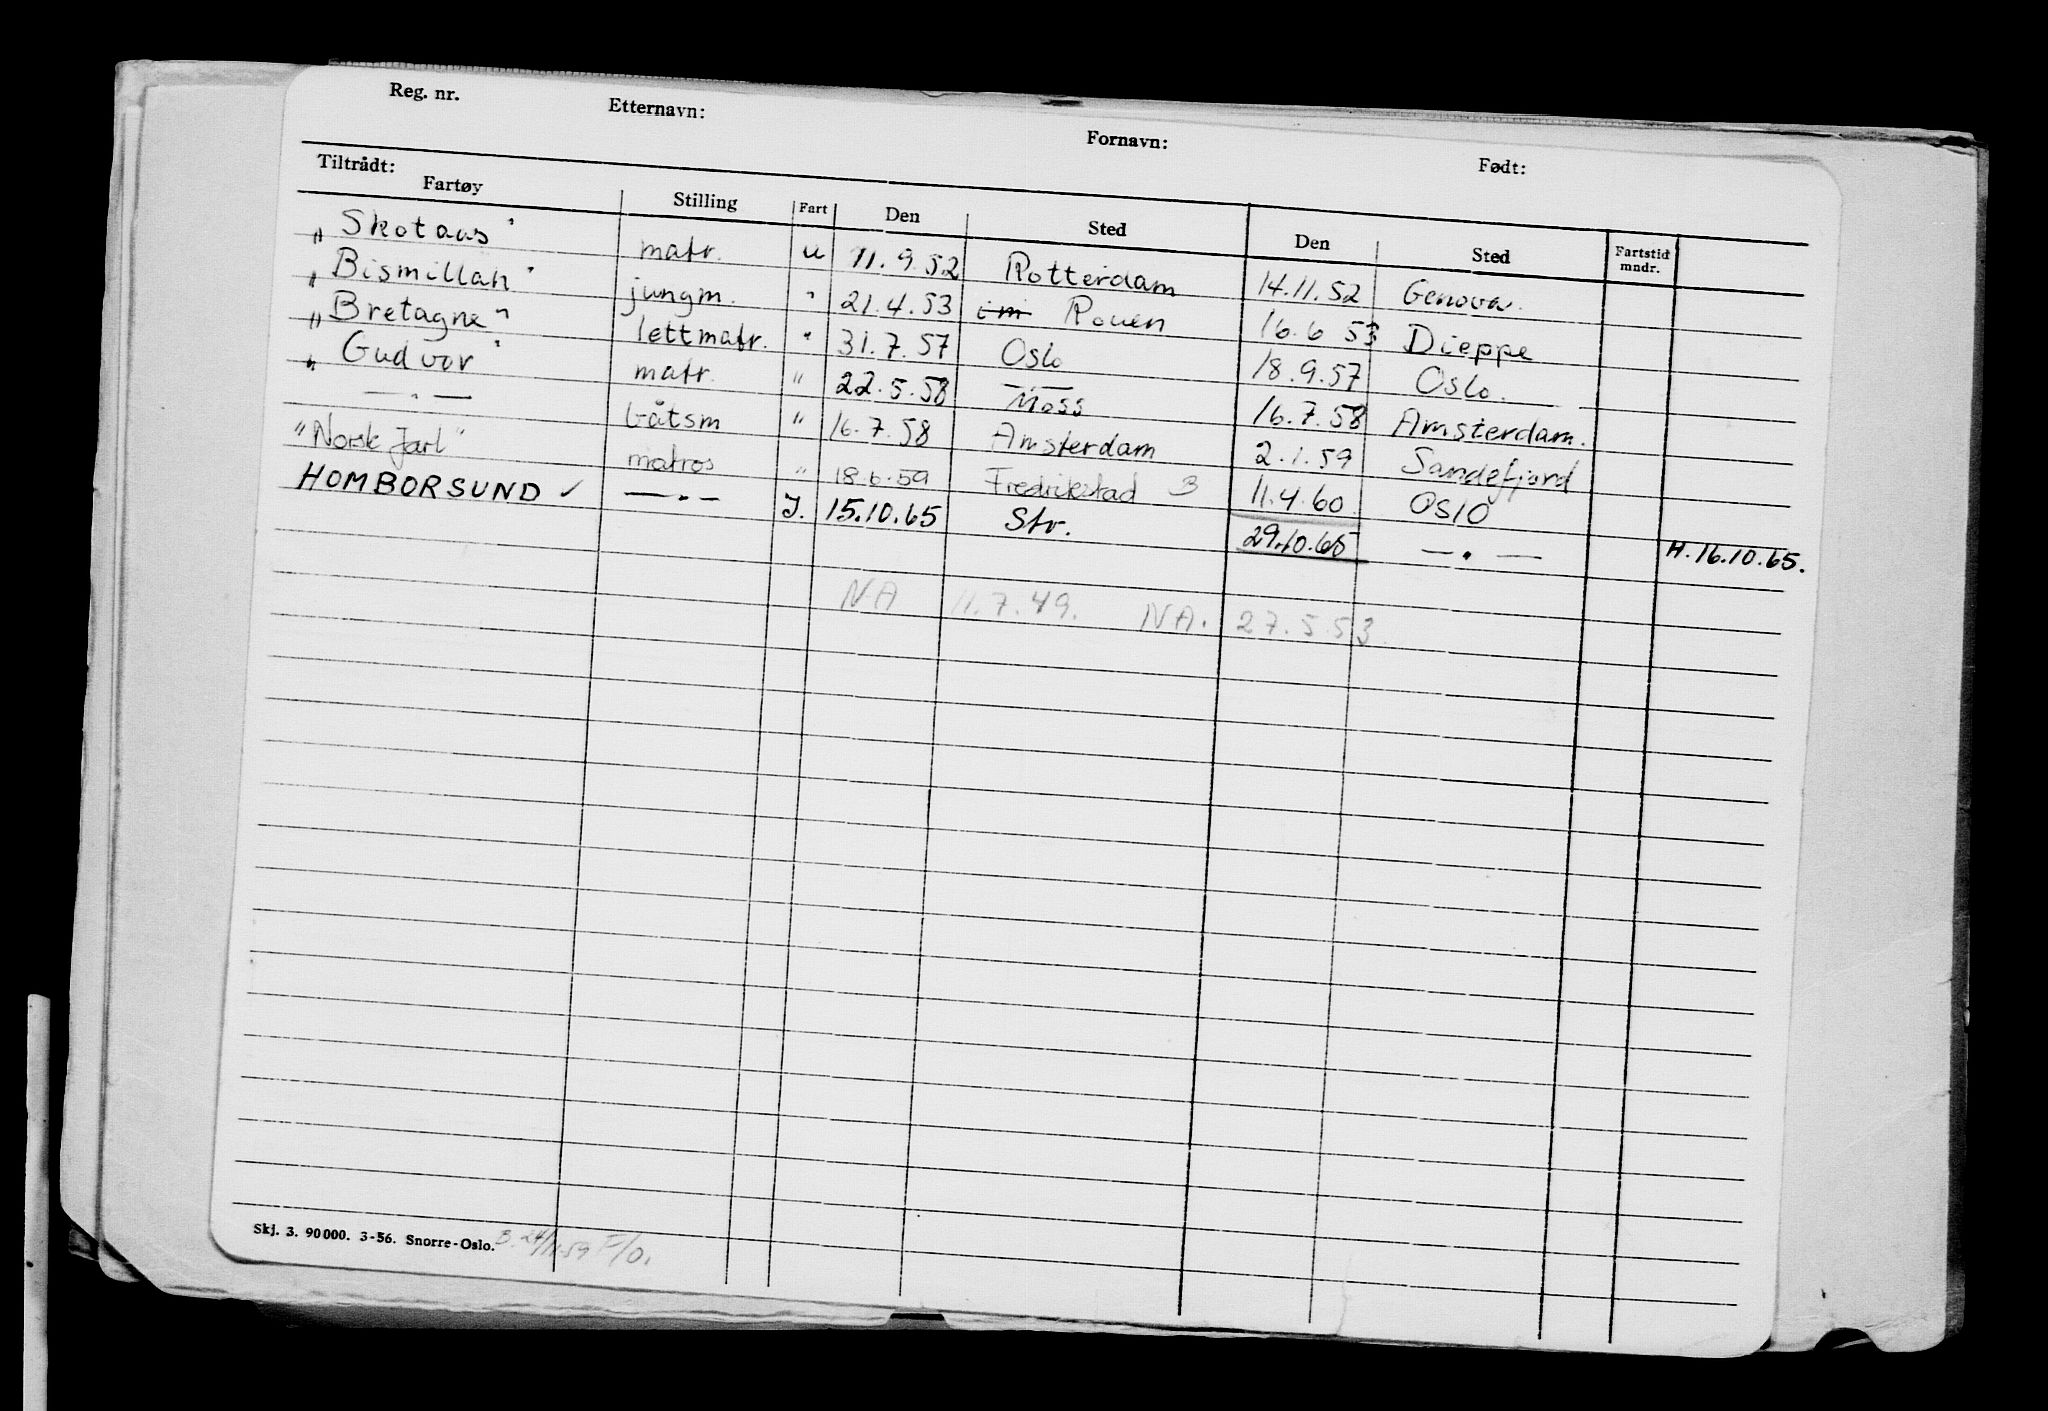 Reg. nr. Etternavn: Fornavn: Født:
Tiltrådt:
Fartøy Stilling Fart Den Sted Den Sted Fartstid mndr.
„Skotaas" matr. u 11.9.52 Rotterdam 14.11.52 Genova.
„Bismillah" jungm. " 21.4.53 Rouen 16.6 53 Dieppe
„Bretagne" lettmatr. " 31.7.57 Oslo 18.9.57 Oslo.
„Gudvor" matr. " 22.5.58 Moss 16.7.58 Amsterdam.
— " — båtsm " 16.7.58 Amsterdam 2.1.59 Sandefjord
"Norsk Jarl" matros " 18.6.59 Fredrikstad B 11.4.60 OSLO
HOMBORSUND ✓ — " — J. 15.10.65 Str. 29.10.65 — " — H.16.10.65.
NA 11.7.49. NA. 27.5.53.
Skj. 3. 90000. 3-56. Snorre-Oslo. B. 24/11-59 F/O.